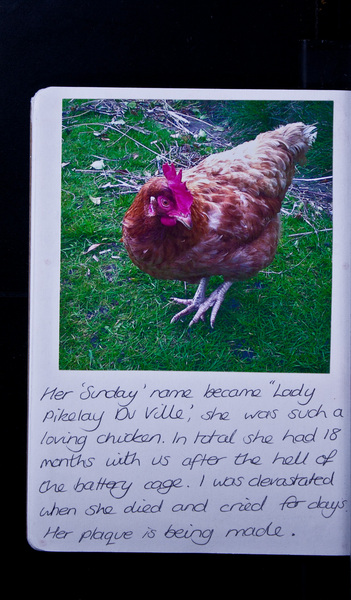 Her 'Sunday' name became "Lady
Pikelay Du Ville', she was such a
loving chicken. In total she had 18
months with us after the hell of
the battery cage. I was devastated
when she died and cried for days.
Her plaque is being made.